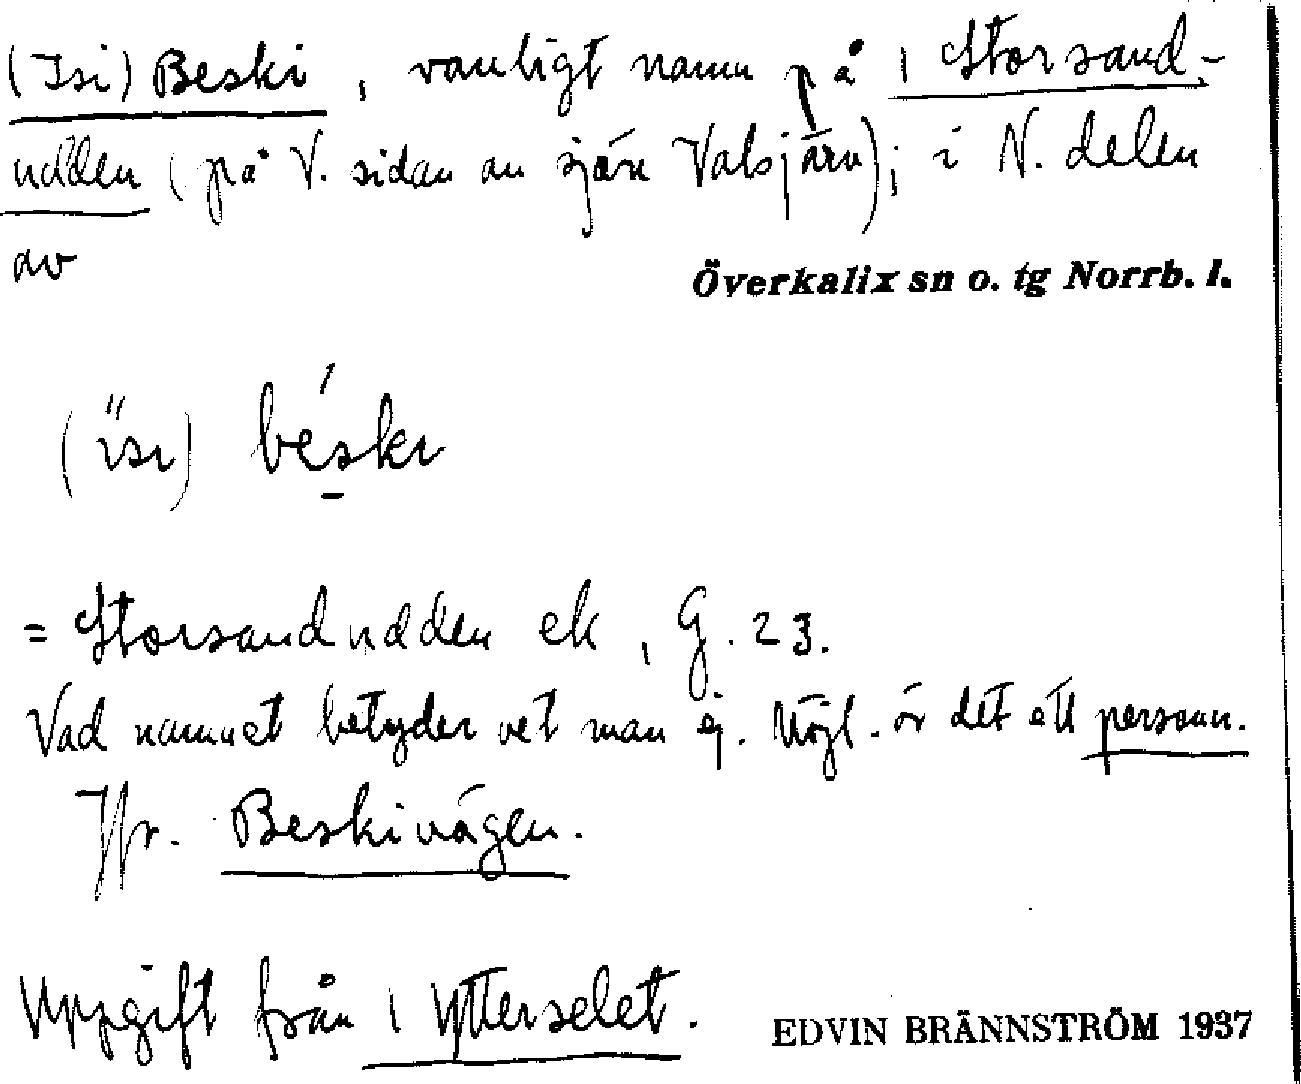 (Isi) Beski, vanligt namn på 1 Storsand-
udden (på V. sidan av sjön Valsjärv); i N. delen
av
Överkalix sn o. tg Norrb. l.
(ı̋sı) béskı
= Storsandudden ek, G. 23.
Vad namnet betyder vet man ej. Möjl. är det ett personn.
Jfr. Beskivägen.
Uppgift från 1 Ytterselet.
EDVIN BRÄNNSTRÖM 1937